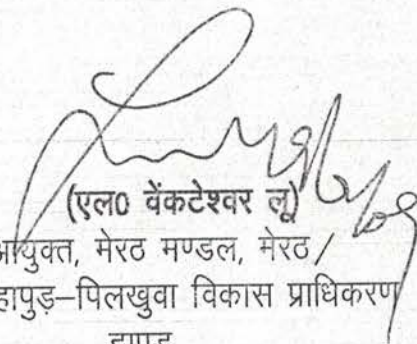 (एल0 वेंकटेश्वर लू)
आयुक्त, मेरठ मण्डल, मेरठ/
हापुड़–पिलखुवा विकास प्राधिकरण
हापुड़